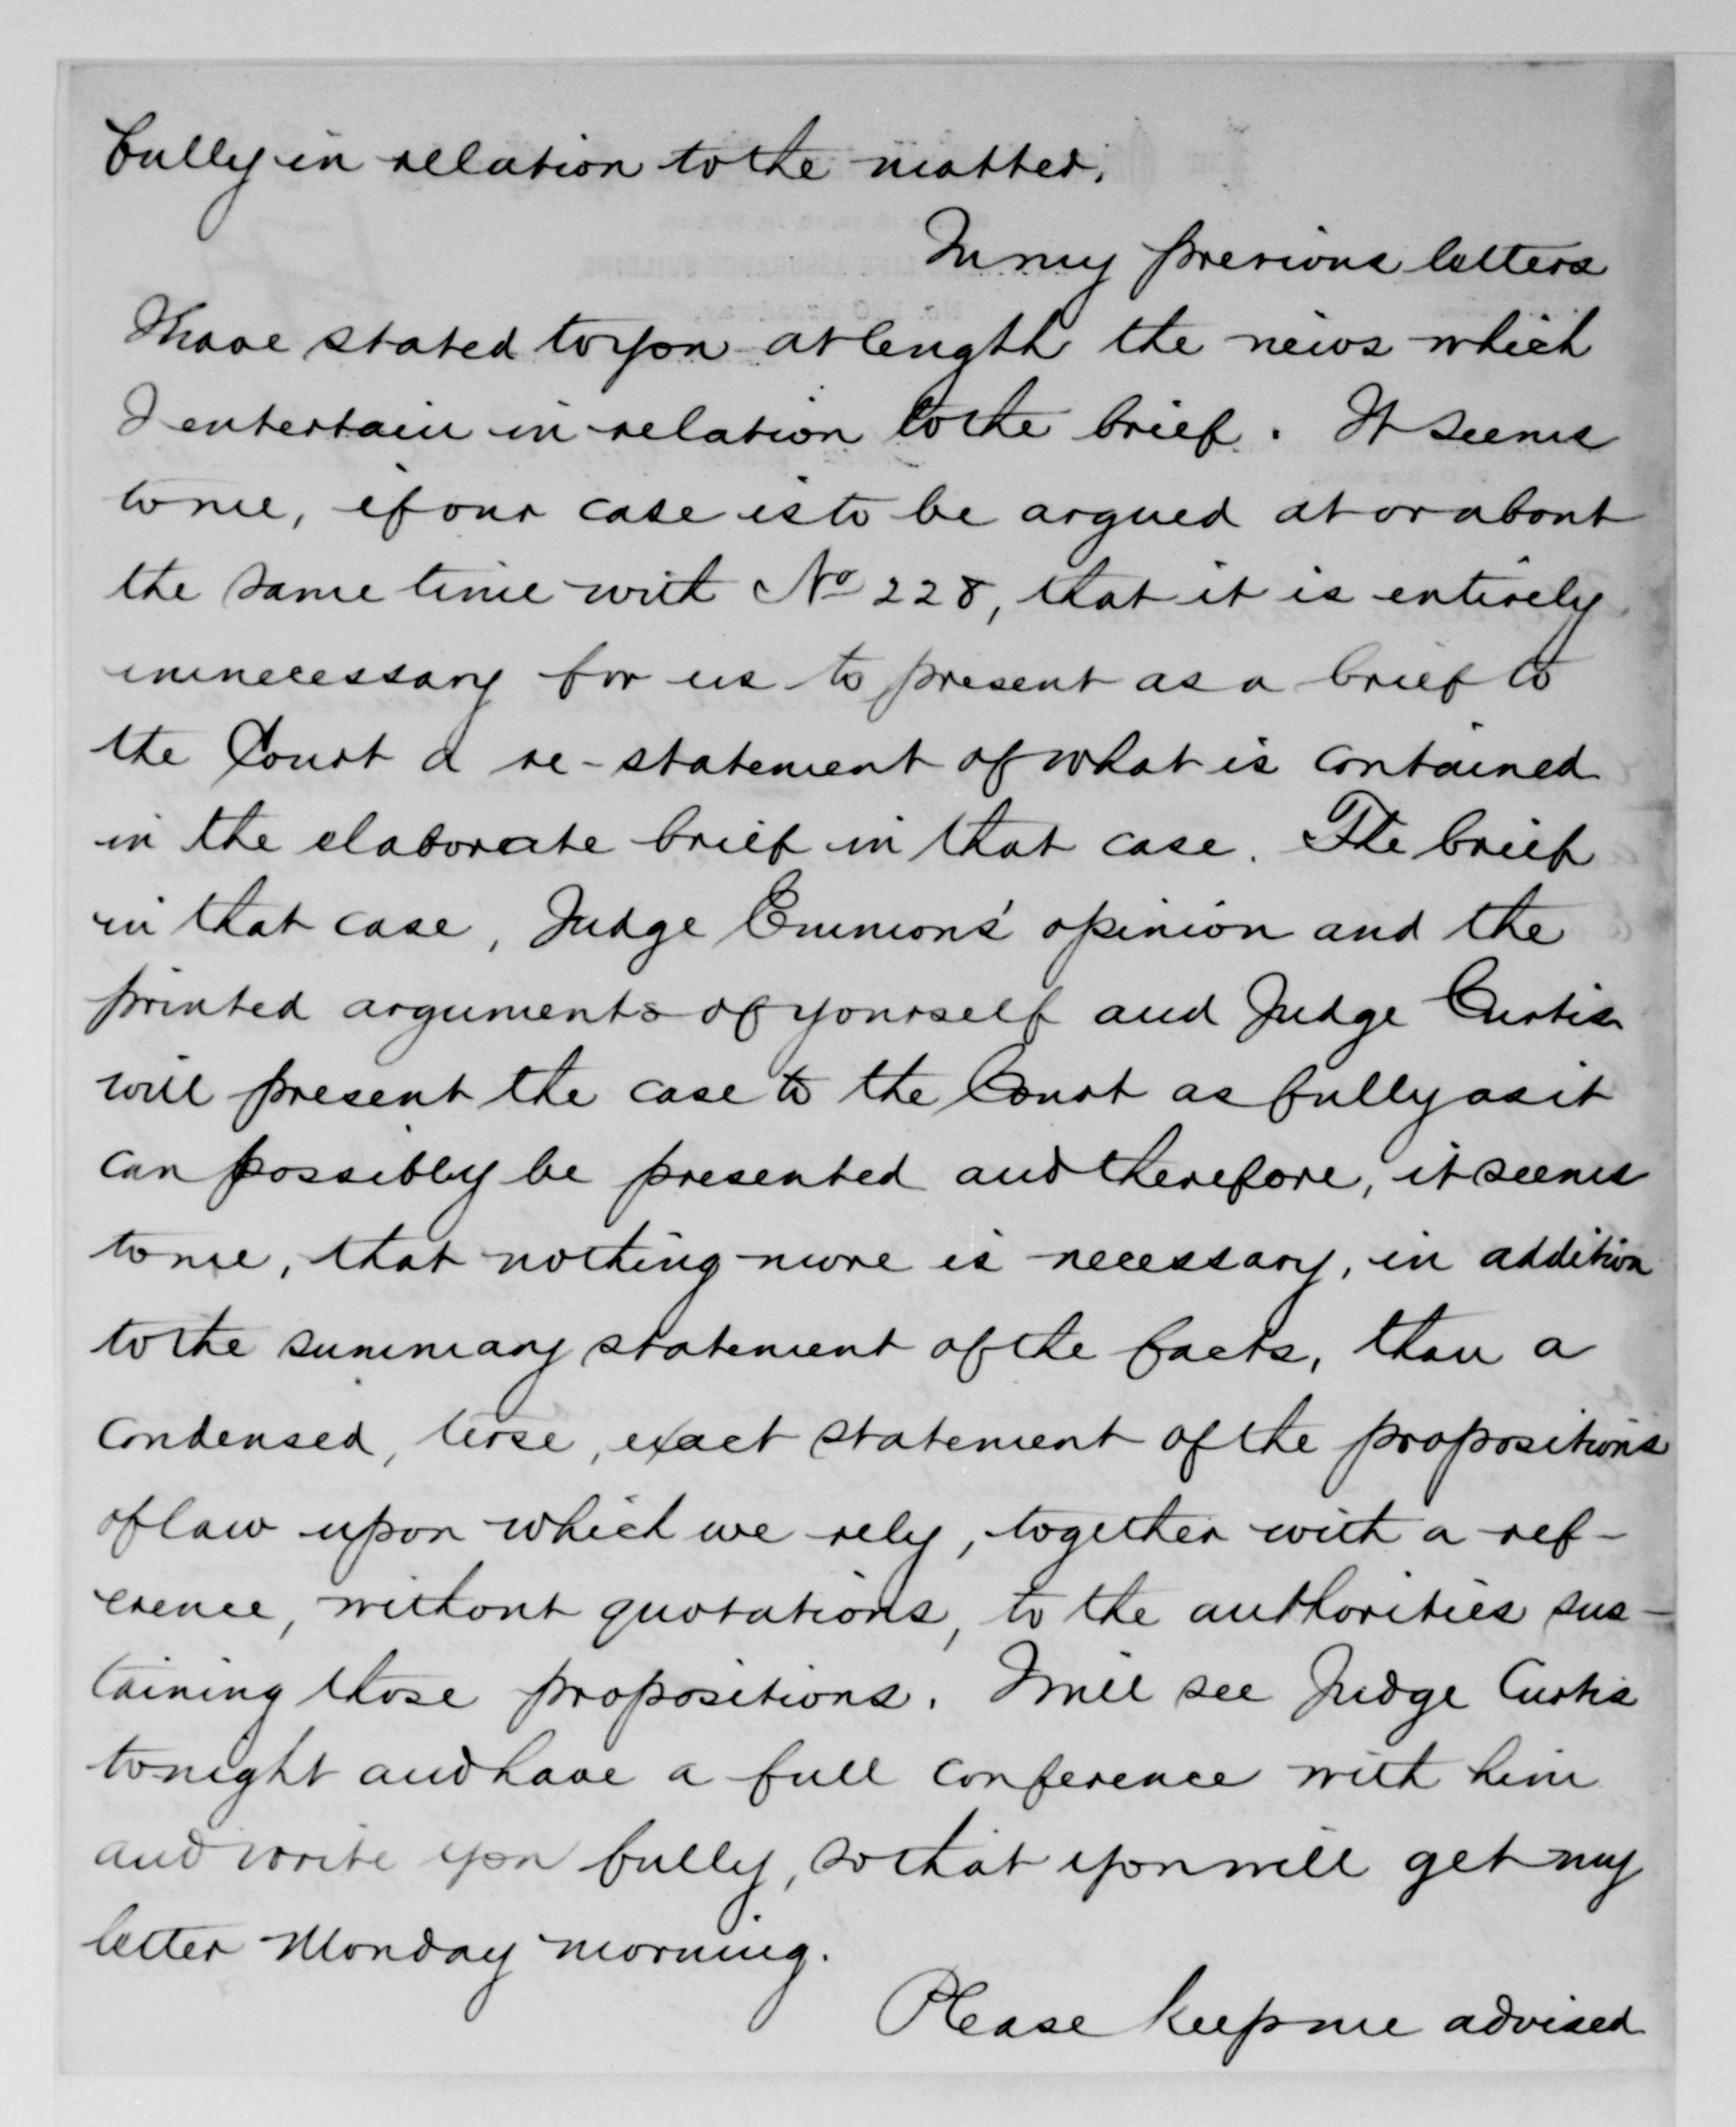 fully in relation to the matter.
In my previous letters
I have stated to you at length the views which
I entertain in relation to the brief. It seems
to me, if our case is to be argued at or about
the same time with No 228, that it is entirely
unnecessary for us to present as a brief to
the Court a re-statement of what is contained
in the elaborate brief in that case. The brief
in that case, Judge Emmons' opinion and the
printed arguments of yourself and Judge Curtis
will present the case to the Court as fully as it
can possibly be presented and therefore, it seems
to me, that nothing more is necessary, in addition
to the summary statement of the facts, than a
condensed, terse, exact statement of the propositions
of law upon which we rely, together with a ref-
erence, without quotations, to the authorities sus-
taining those propositions. I will see Judge Curtis
tonight and have a full conference with him
and write you fully, so that you will get my
letter Monday morning.
Please keep me advised